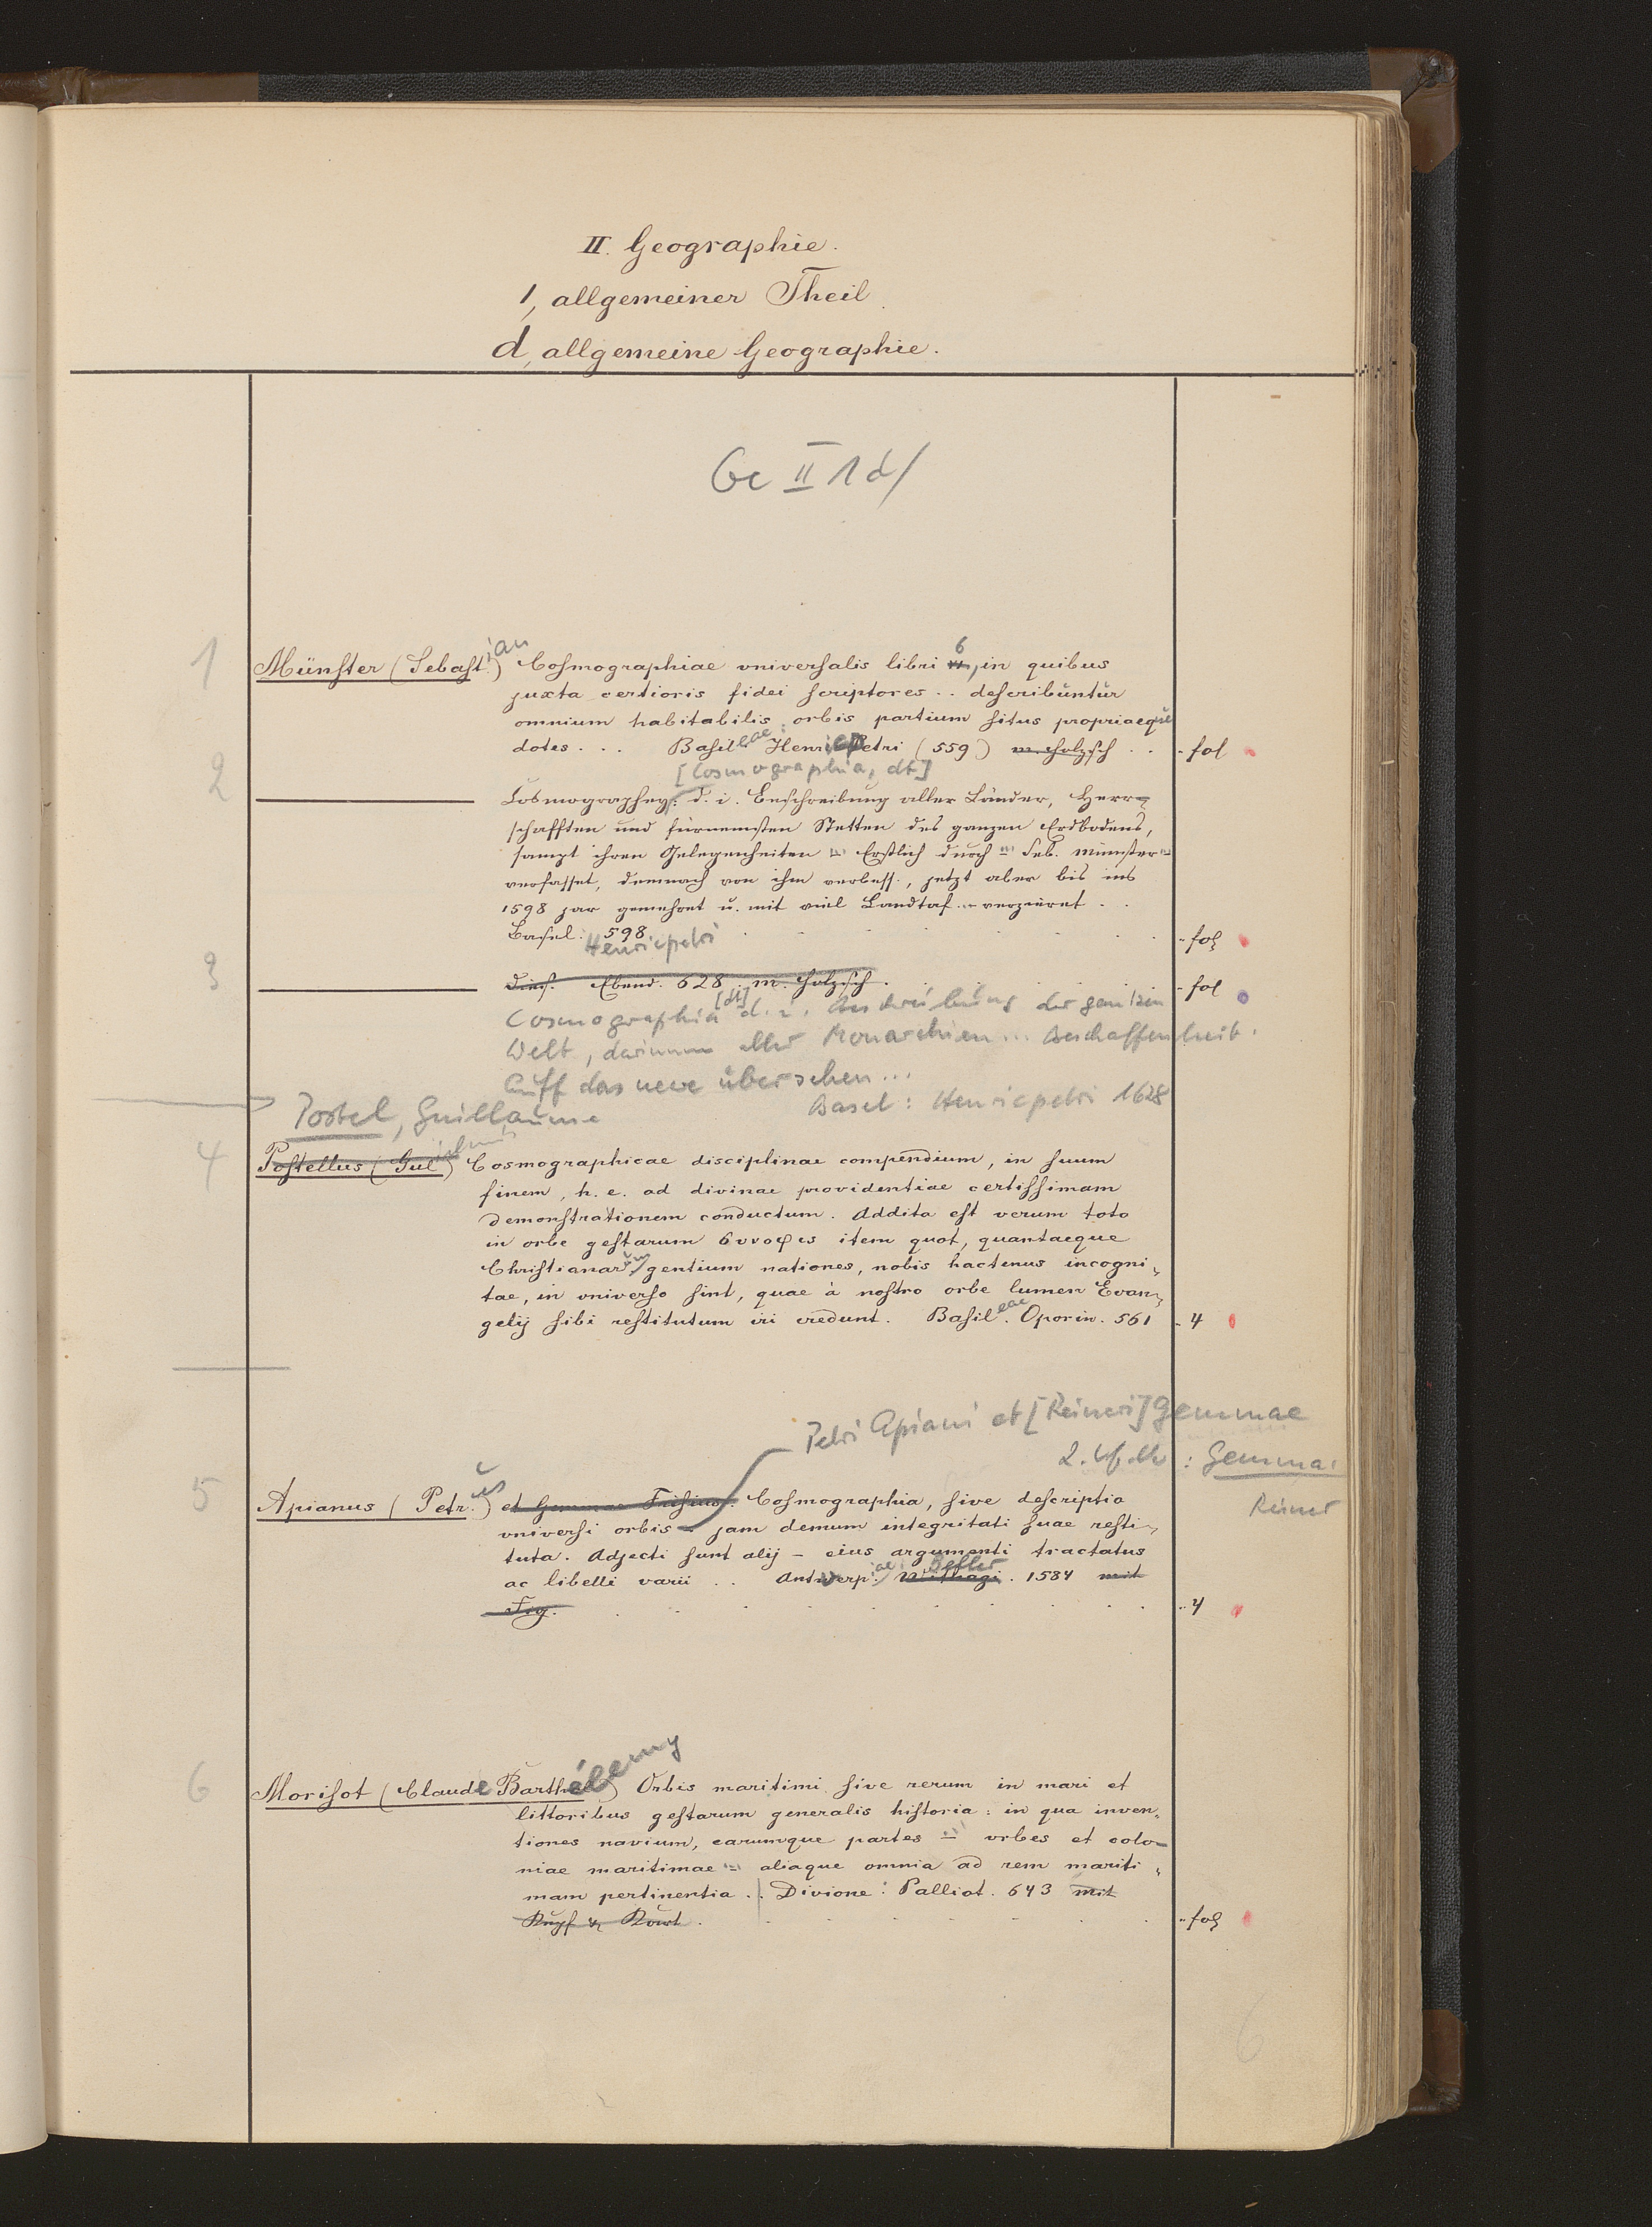 II. Geographie.
1, allgemeiner Theil.
d, allgemeine Geographie.
Ge II 1 d/
1 Münster (Sebastian) Cosmographiae vniversalis libri 6, in quibus
juxta certioris fidei scriptores .. describuntur
omnium habitabilis orbis partium situs propriaeque
dotes ... Basileae: Henricpetri (559) m. Holzsch .. fol
[Cosmographia, dt]
2 Cosmographey: d. i. Beschreibung aller Länder, Herr-
schafften und fürnemsten Stetten des ganzen Erdbodens,
sampt ihren Gelegenheiten ... Erstlich durch ... Seb. Münster
verfasset, demnach von ihm verbess., jetzt aber bis ins
1598 jar gemehret u. mit viel Landtaf. ... verzieret ..
Basel: 598 fol
Henricpetri
3 Dies. Ebend. 628. m. Holzsch. fol
Cosmographia [dt] d. i. Beschreibung der gantzen
Welt, darinnen aller Monarchien ... Beschaffenheit.
Auff das neue übersehen ...
Basel: Henricpetri 1628
Postel, Guillaume
4 Postellus (Gulielmus) Cosmographicae disciplinae compendium, in suum
finem, h. e. ad divinae providentiae certissimam
demonstrationem conductum. Addita est verum toto
in orbe gestarum συνοψις item quot, quantaeque
Christianarum gentium nationes, nobis hactenus incogni-
tae, in vniverso sint, quae à nostro orbe lumen Evan-
gelij sibi restitutum iri credunt. Basileae. Oporin. 561 4
Petri Apiani et [Reineri] Gemmae
2. Verf. : Gemma,
Reiner
5 Apianus (Petrus) et Gemmae Frisius. Cosmographia, sive descriptio
vniversi orbis – jam demum integritati suae resti-
tuta. Adjecti sunt alij – eius argumenti tractatus
ac libelli varii .. Antverpiae: Beller Withagi. 1584 mit
Fig. 4
6 Morisot (Claude Barthélemy) Orbis maritimi sive rerum in mari et
littoribus gestarum generalis historia: in qua inven-
tiones navium, earumque partes ... vrbes et colo-
niae maritimae ... aliaque omnia ad rem mariti-
mam pertinentia .. Divione: Palliot. 643 mit
Kupf & Kart. fol
6